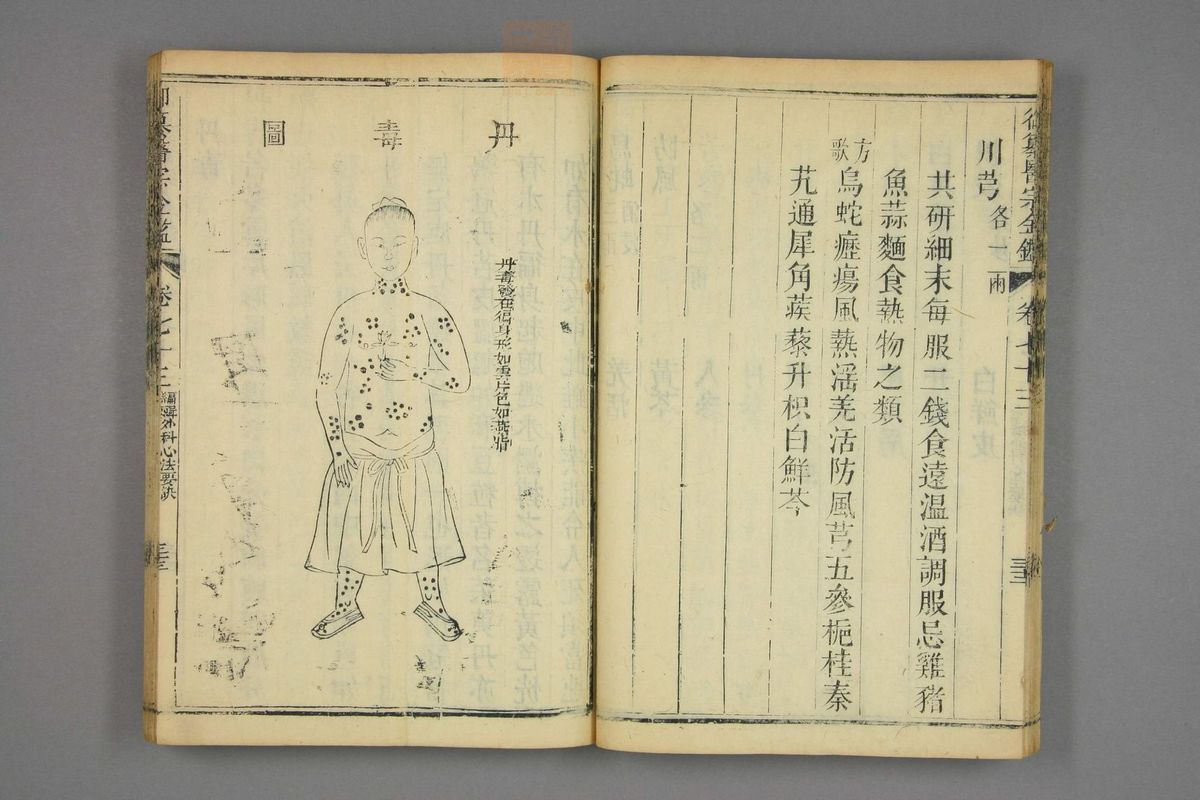 御纂醫宗金鑑 卷七十三
三三
川芎 各一兩
共研細末每服二錢食遠溫酒調服忌雞猪
魚蒜麵食熱物之類
方歌
烏蛇癧瘍風熱滛羌活防風芎五參梔桂秦
艽通犀角蒺藜升枳白鮮芩
丹毒圖
丹毒發在徧身形如雲片色如
御纂醫宗金鑑 卷七十三 編輯外科心法要訣
三三